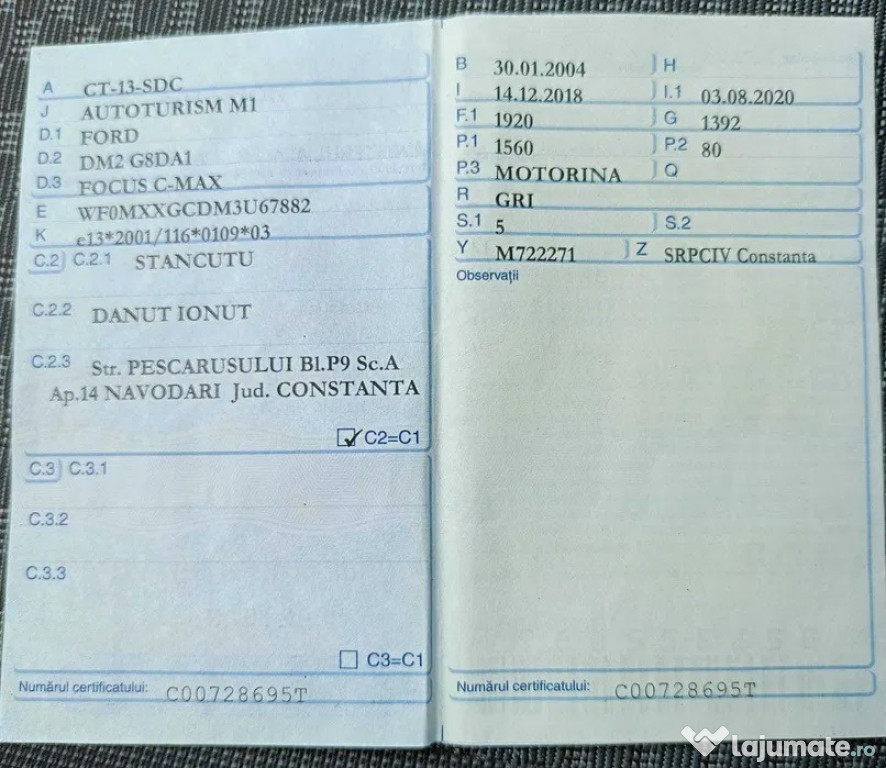 A CT-13-SDC
J AUTOTURISM M1
D.1 FORD
D.2 DM2 G8DA1
D.3 FOCUS C-MAX
E WF0MXXGCDM3U67882
K e13*2001/116*0109*03
C.2 C.2.1 STANCUTU
C.2.2 DANUT IONUT
C.2.3 Str. PESCARUSULUI Bl.P9 Sc.A
Ap.14 NAVODARI Jud. CONSTANTA
C2=C1
C.3 C.3.1
C.3.2
C.3.3
C3=C1
Numărul certificatului: C00728695T
B 30.01.2004 H
I 14.12.2018 I.1 03.08.2020
F.1 1920 G 1392
P.1 1560 P.2 80
P.3 MOTORINA Q
R GRI
S.1 5 S.2
Y M722271 Z SRPCIV Constanta
Observații
Numărul certificatului: C00728695T
lajumate.ro